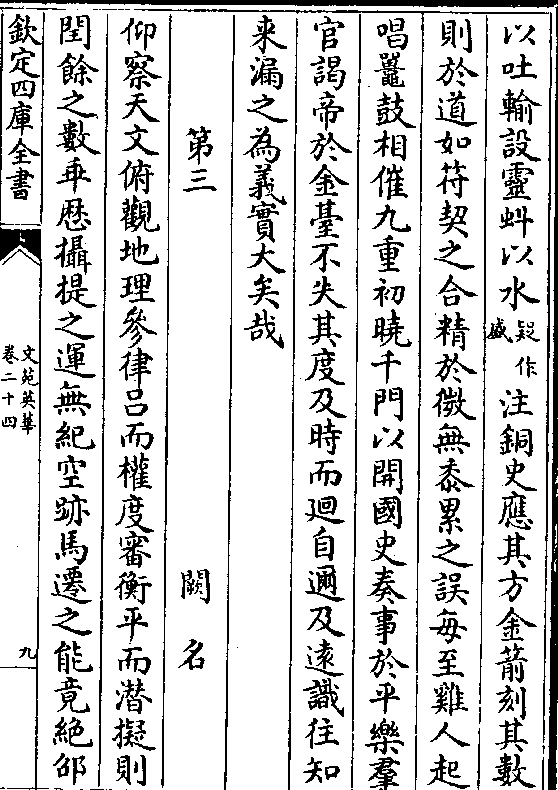 以吐輸設靈虯以水疑作盛注銅史應其方金箭刻其數
則於道如符契之合精於微無黍累之誤每至雞人起
唱鼉鼓相催九重初曉千門以開國史奏事於平樂羣
官謁帝於金臺不失其度及時而廻自邇及遠識往知
来漏之為義實大矣哉
第三 闕名
仰察天文俯觀地理參律吕而權度審衡平而潜擬則
閏餘之數乖歴攝提之運無紀空跡馬遷之能竟絶邵
欽定四庫全書
文苑英華
卷二十四
九